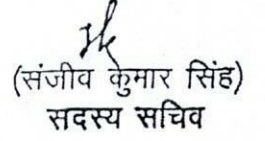 (संजीव कुमार सिंह)
सदस्य सचिव